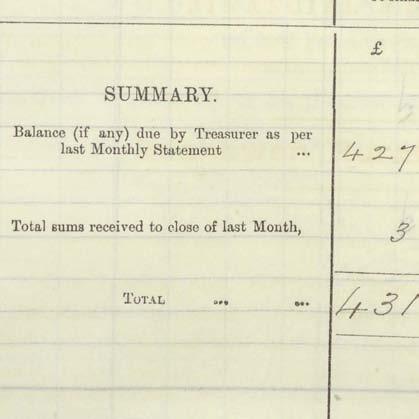 £
SUMMARY.
Balance (if any) due by Treasurer as per
last Monthly Statement ... 427
Total sums received to close of last Month, 3
TOTAL ... ... 431